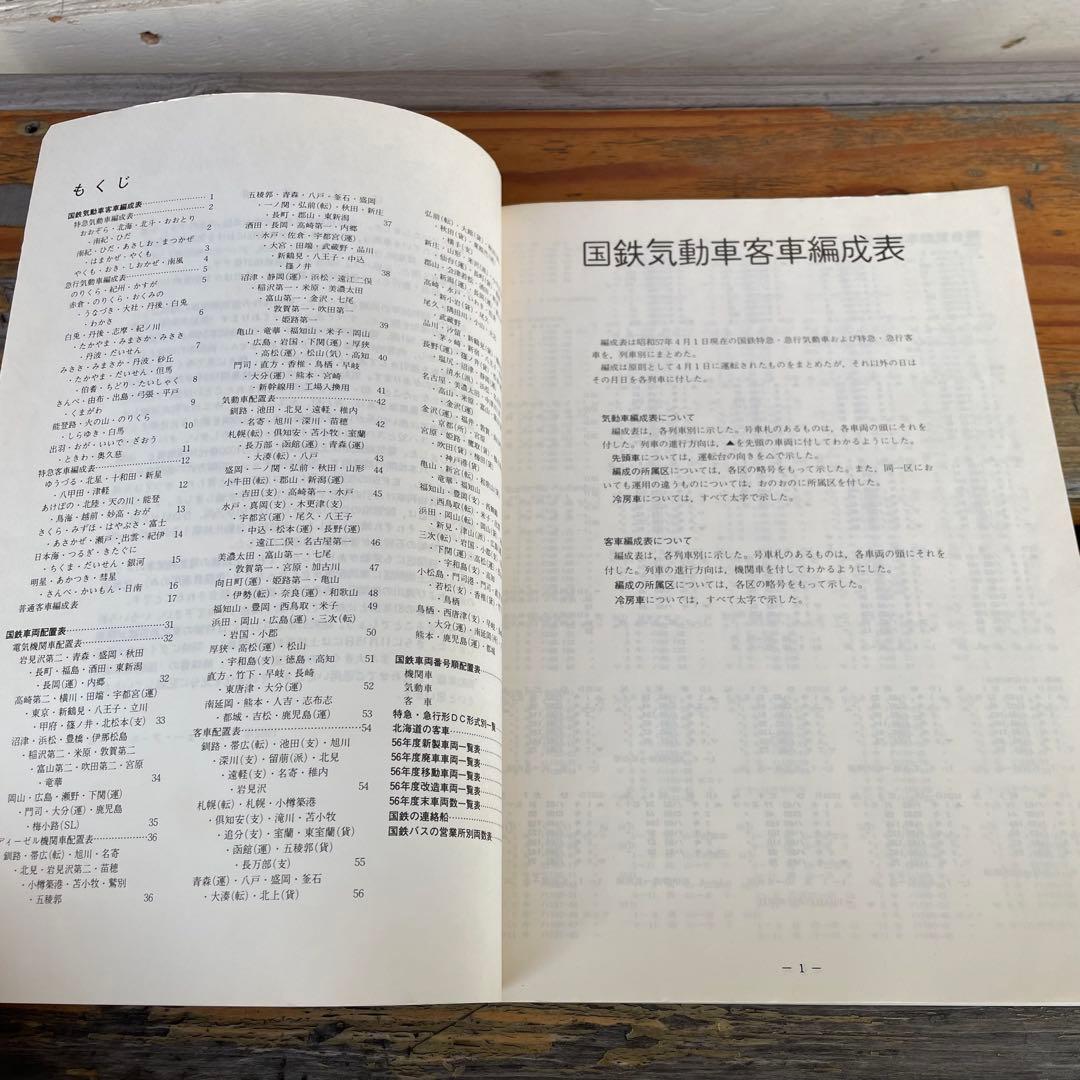 もくじ
国鉄気動車客車編成表…………1
特急気動車編成表…………2
おおぞら・北海・北斗・おおとり
・南紀・ひだ 2
南紀・ひだ・あさしお・まつかぜ
・はまかぜ・やくも 4
やくも・おき・しおかぜ・南風 4
急行気動車編成表…………5
のりくら・紀州・かすが 5
赤倉・のりくら・おくみの
・うなづき・大社・丹後・白兎
・わかさ 6
白兎・丹後・志摩・紀ノ川
・たかやま・みまさか・みささ
・丹波・だいせん 7
みささ・みまさか・丹波・砂丘
・たかやま・だいせん・但馬
・伯耆・ちどり・たいしゃく 8
さんべ・由布・出島・弓張・平戸
・くまがわ 9
能登路・火の山・のりくら
・しらゆき・白馬 10
出羽・おが・いいで・ざおう
・ときわ・奥久慈 11
特急客車編成表…………12
ゆうづる・北星・十和田・新星
・八甲田・津軽 12
あけぼの・北陸・天の川・能登
・鳥海・越前・妙高・おが 13
さくら・みずほ・はやぶさ・富士
・あさかぜ・瀬戸・出雲・紀伊 14
日本海・つるぎ・きたぐに
・ちくま・だいせん・銀河 15
明星・あかつき・彗星
・さんべ・かいもん・日南 16
普通客車編成表 17
国鉄車両配置表…………31
電気機関車配置表…………32
岩見沢第二・青森・盛岡・秋田
・長町・福島・酒田・東新潟
・長岡(運)・内郷 32
高崎第二・横川・田端・宇都宮(運)
・東京・新鶴見・八王子・立川
・甲府・篠ノ井・北松本(支) 33
沼津・浜松・豊橋・伊那松島
・稲沢第二・米原・敦賀第二
・富山第二・吹田第二・宮原
・竜華 34
岡山・広島・瀬野・下関(運)
・門司・大分(運)・鹿児島
・梅小路(SL) 35
ディーゼル機関車配置表…………36
釧路・帯広(転)・旭川・名寄
・北見・岩見沢第二・苗穂
・小樽築港・苫小牧・鷲別
・五稜郭 36
五稜郭・青森・八戸・釜石・盛岡
・一ノ関・弘前(転)・秋田・新庄
・長町・郡山・東新潟 37
酒田・長岡・高崎第一・内郷
・水戸・佐倉・宇都宮(運)
・大宮・田端・武蔵野・品川
・新鶴見・八王子・中込
・篠ノ井 38
沼津・静岡(運)・浜松・遠江二俣
・稲沢第一・米原・美濃太田
・富山第一・金沢・七尾
・敦賀第一・吹田第一
・姫路第一 39
亀山・竜華・福知山・米子・岡山
・広島・岩国・下関(運)・厚狭
・高松(運)・松山(気)・高知 40
門司・直方・香椎・鳥栖・早岐
・大分(運)・熊本・宮崎
・新幹線用・工場入換用 41
気動車配置表…………42
釧路・池田・北見・遠軽・稚内
・名寄・旭川・深川・苗穂 42
札幌(転)・倶知安・苫小牧・室蘭
・長万部・函館(運)・青森(運)
・大湊(転)・八戸 43
盛岡・一ノ関・弘前・秋田・山形 44
小牛田(転)・郡山・新潟(運)
・吉田(支)・高崎第一・水戸 45
水戸・真岡(支)・木更津(支)
・宇都宮(運)・尾久・八王子
・中込・松本(運)・長野(運)
・遠江二俣・名古屋第一 46
美濃太田・富山第一・七尾
・敦賀第一・宮原・加古川 47
向日町(運)・姫路第一・亀山
・伊勢(転)・奈良(運)・和歌山 48
福知山・豊岡・西鳥取・米子 49
浜田・岡山・広島(運)・三次(転)
・岩国・小郡 50
厚狭・高松(運)・松山
・宇和島(支)・徳島・高知 51
直方・竹下・早岐・長崎
・東唐津・大分(運) 52
南延岡・熊本・人吉・志布志
・都城・吉松・鹿児島(運) 53
客車配置表…………54
釧路・帯広(転)・池田(支)・旭川
・深川(支)・留萌(派)・北見
・遠軽(支)・名寄・稚内
・岩見沢 54
札幌(転)・札幌・小樽築港
・倶知安(支)・滝川・苫小牧
・追分(支)・室蘭・東室蘭(貨)
・函館(運)・五稜郭(貨)
・長万部(支) 55
青森(運)・八戸・盛岡・釜石
・大湊(転)・北上(貨) 56
弘前(転)・大館(貨)
・秋田(貨)
・横手(支)
新庄・山形
・仙台(運)
郡山・会津若松
・新潟(運)
高崎・水戸・いわき
・新小岩(貨)
尾久・隅田川・小山・大宮
・武蔵野
品川・汐留・新鶴見
・茅ヶ崎・新前橋
長野(運)
・塩尻
・清水(派)
名古屋・美濃太田
・高山
・金沢(運)
金沢(運)・福井
・京都(所)
宮原・姫路・鷹取
・吹田(貨)・梅田(貨)
・神戸港(貨)
亀山・新宮(転)
・竜華・福知山
福知山・豊岡(支)・西舞鶴
・西鳥取(転)・米子
浜田・岡山(転)
・新見・津山(派)
三次(転)・岩国・小郡
・下関(運)
・宇和島(支)・高知
小松島・門司港・門司
・若松(支)・香椎(貨)
・鳥栖
鳥栖・西唐津(支)
・大分(運)・南延岡
熊本・鹿児島(運)・都城
国鉄車両番号順配置表…………
機関車
気動車
客　車
特急・急行形DC形式別一覧……
北海道の客車…………
56年度新製車両一覧表…………
56年度廃車車両一覧表…………
56年度移動車両一覧表…………
56年度改造車両一覧表…………
56年度末車両数一覧表…………
国鉄の連絡船…………
国鉄バスの営業所別両数表……
国鉄気動車客車編成表
編成表は昭和57年4月1日現在の国鉄特急・急行気動車および特急・急行客
車を，列車別にまとめた。
編成は原則として4月1日に運転されたものをまとめたが，それ以外の日は
その月日を各列車に付した。
気動車編成表について
編成表は，各列車別に示した。号車札のあるものは，各車両の頭にそれを
付した。列車の進行方向は，▲を先頭の車両に付してわかるようにした。
先頭車については，運転台の向きを△で示した。
編成の所属区については，各区の略号をもって示した。また，同一区にお
いても運用の違うものについては，おのおのに所属区を付した。
冷房車については，すべて太字で示した。
客車編成表について
編成表は，各列車別に示した。号車札のあるものは，各車両の頭にそれを
付した。列車の進行方向は，機関車を付してわかるようにした。
編成の所属区については，各区の略号をもって示した。
冷房車については，すべて太字で示した。
― 1 ―